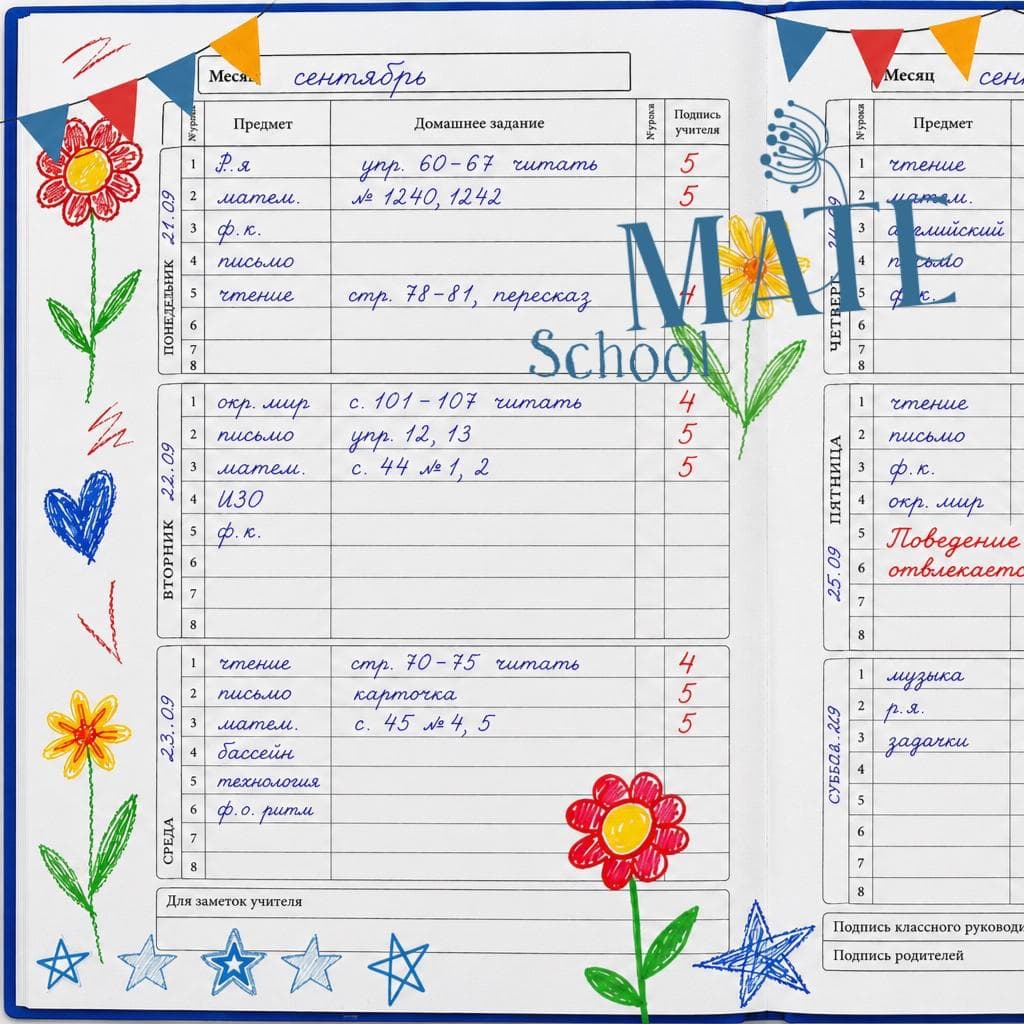 Месяц сентябрь
№ урока Предмет Домашнее задание № урока Подпись учителя
ПОНЕДЕЛЬНИК 21.09
1 Р.я упр. 60-67 читать 5
2 матем. № 1240, 1242 5
3 ф.к.
4 письмо
5 чтение стр. 78-81, пересказ 4
6
7
8
ВТОРНИК 22.09
1 окр. мир с. 101-107 читать 4
2 письмо упр. 12, 13 5
3 матем. с. 44 № 1, 2 5
4 ИЗО
5 ф.к.
6
7
8
СРЕДА 23.09
1 чтение стр. 70-75 читать 4
2 письмо карточка 5
3 матем. с. 45 № 4, 5 5
4 бассейн
5 технология
6 ф.о. ритм
7
8
Для заметок учителя
MATE
School
Месяц
№ урока Предмет
ЧЕТВЕРГ
1 чтение
2 матем.
3 английский
4 письмо
5 ф.к.
6
7
8
ПЯТНИЦА 25.09
1 чтение
2 письмо
3 ф.к.
4 окр. мир
5 Поведение
6
7
8
1 музыка
2 р.я.
3 задачки
4
5
6
7
8
Подпись классного
Подпись родителей